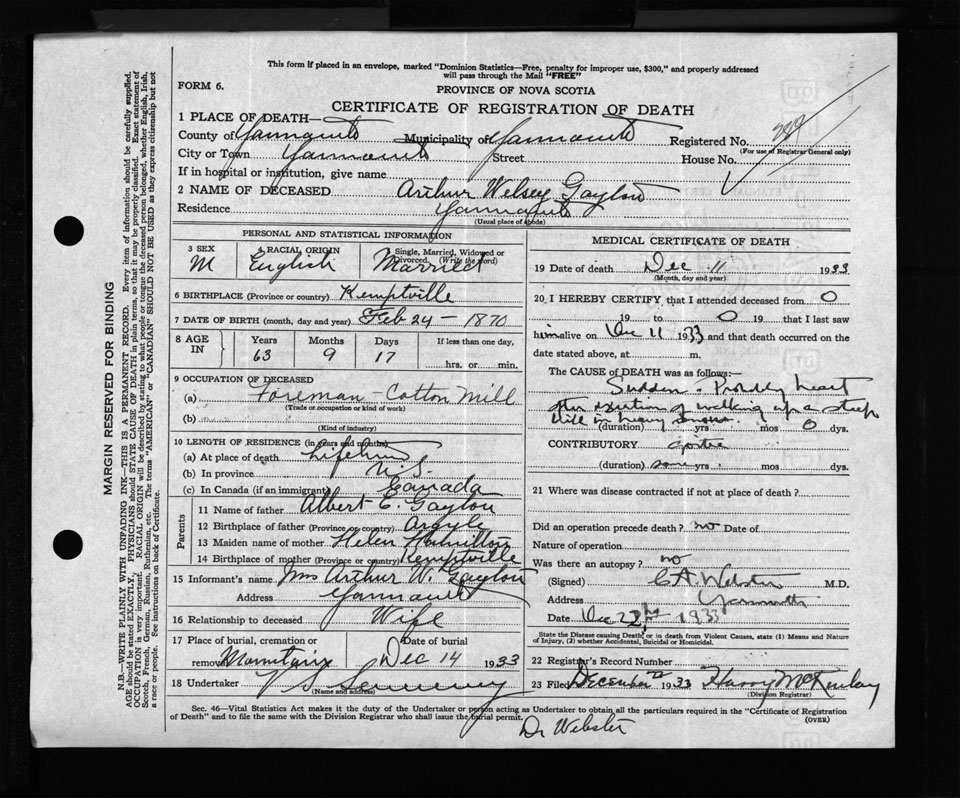 This form if placed in an envelope, marked "Dominion Statistics—Free, penalty for improper use, $300," and properly addressed
will pass through the Mail "FREE"
FORM 6.
PROVINCE OF NOVA SCOTIA
CERTIFICATE OF REGISTRATION OF DEATH
1 PLACE OF DEATH—
County of Yarmouth Municipality of Yarmouth Registered No.
(For use of Registrar General only)
City or Town Yarmouth Street House No.
If in hospital or institution, give name
2 NAME OF DECEASED Arthur Welsey Gayton
Residence Yarmouth
(Usual place of abode)
PERSONAL AND STATISTICAL INFORMATION
3 SEX 4 RACIAL ORIGIN Single, Married, Widowed or Divorced. (Write the word)
M English Married
6 BIRTHPLACE (Province or country) Kemptville
7 DATE OF BIRTH (month, day and year) Feb 24 — 1870
8 AGE IN Years Months Days If less than one day,
63 9 17 hrs. or min.
9 OCCUPATION OF DECEASED
(a) Foreman - Cotton Mill
(Trade or occupation or kind of work)
(b)
(Kind of industry)
10 LENGTH OF RESIDENCE (in years and months)
(a) At place of death Lifetime
(b) In province N.S.
(c) In Canada (if an immigrant) Canada
Parents
11 Name of father Albert E. Gayton
12 Birthplace of father (Province or country) Argyle
13 Maiden name of mother Helen Hamilton
14 Birthplace of mother (Province or country) Kemptville
15 Informant's name Mrs Arthur W. Gayton
Address Yarmouth
16 Relationship to deceased Wife
17 Place of burial, cremation or removal Date of burial
Mountain Dec 14 1933
18 Undertaker V S Sweeney
(Name and address)
MEDICAL CERTIFICATE OF DEATH
19 Date of death Dec 11 1933
(Month, day and year)
20 I HEREBY CERTIFY that I attended deceased from 0
19 to 0 19 that I last saw
him alive on Dec 11 1933 and that death occurred on
date stated above, at m.
The CAUSE OF DEATH was as follows:—
Sudden - Probably heart
after exertion of walking up a steep
hill in
(duration) yrs. mos 0 dys.
CONTRIBUTORY goitre
(duration) some yrs. mos. dys.
21 Where was disease contracted if not at place of death?
Did an operation precede death? no Date of
Nature of operation
Was there an autopsy? no
(Signed) C A Webster M.D.
Address Yarmouth
Date Dec 22nd 1933
State the Disease causing Death; or in death from Violent Causes, state (1) Means and Nature
of Injury, (2) whether Accidental, Suicidal or Homicidal.
22 Registrar's Record Number
23 Filed December 22 1933 Harry McKinlay
(Division Registrar)
Sec. 46—Vital Statistics Act makes it duty of the Undertaker or person acting as Undertaker to obtain all the particulars required in the "Certificate of Registration
of Death" and to file the same with the Division Registrar who shall issue the burial permit. (OVER)
Dr Webster
MARGIN RESERVED FOR BINDING
N.B.—WRITE PLAINLY WITH UNFADING INK—THIS IS A PERMANENT RECORD. Every item of information should be carefully supplied.
AGE should be stated EXACTLY, PHYSICIANS should STATE CAUSE OF DEATH in plain terms, so that it may be properly classified. Exact statement of
OCCUPATION is very important. RACIAL ORIGIN will be described by stating to what people or tongue the deceased person belonged, whether English, Irish,
Scotch, French, German, Russian, Ruthenian, etc. The terms "AMERICAN" or "CANADIAN" SHOULD NOT BE USED as they express citizenship but not
a race or people. See instructions on back of Certificate.